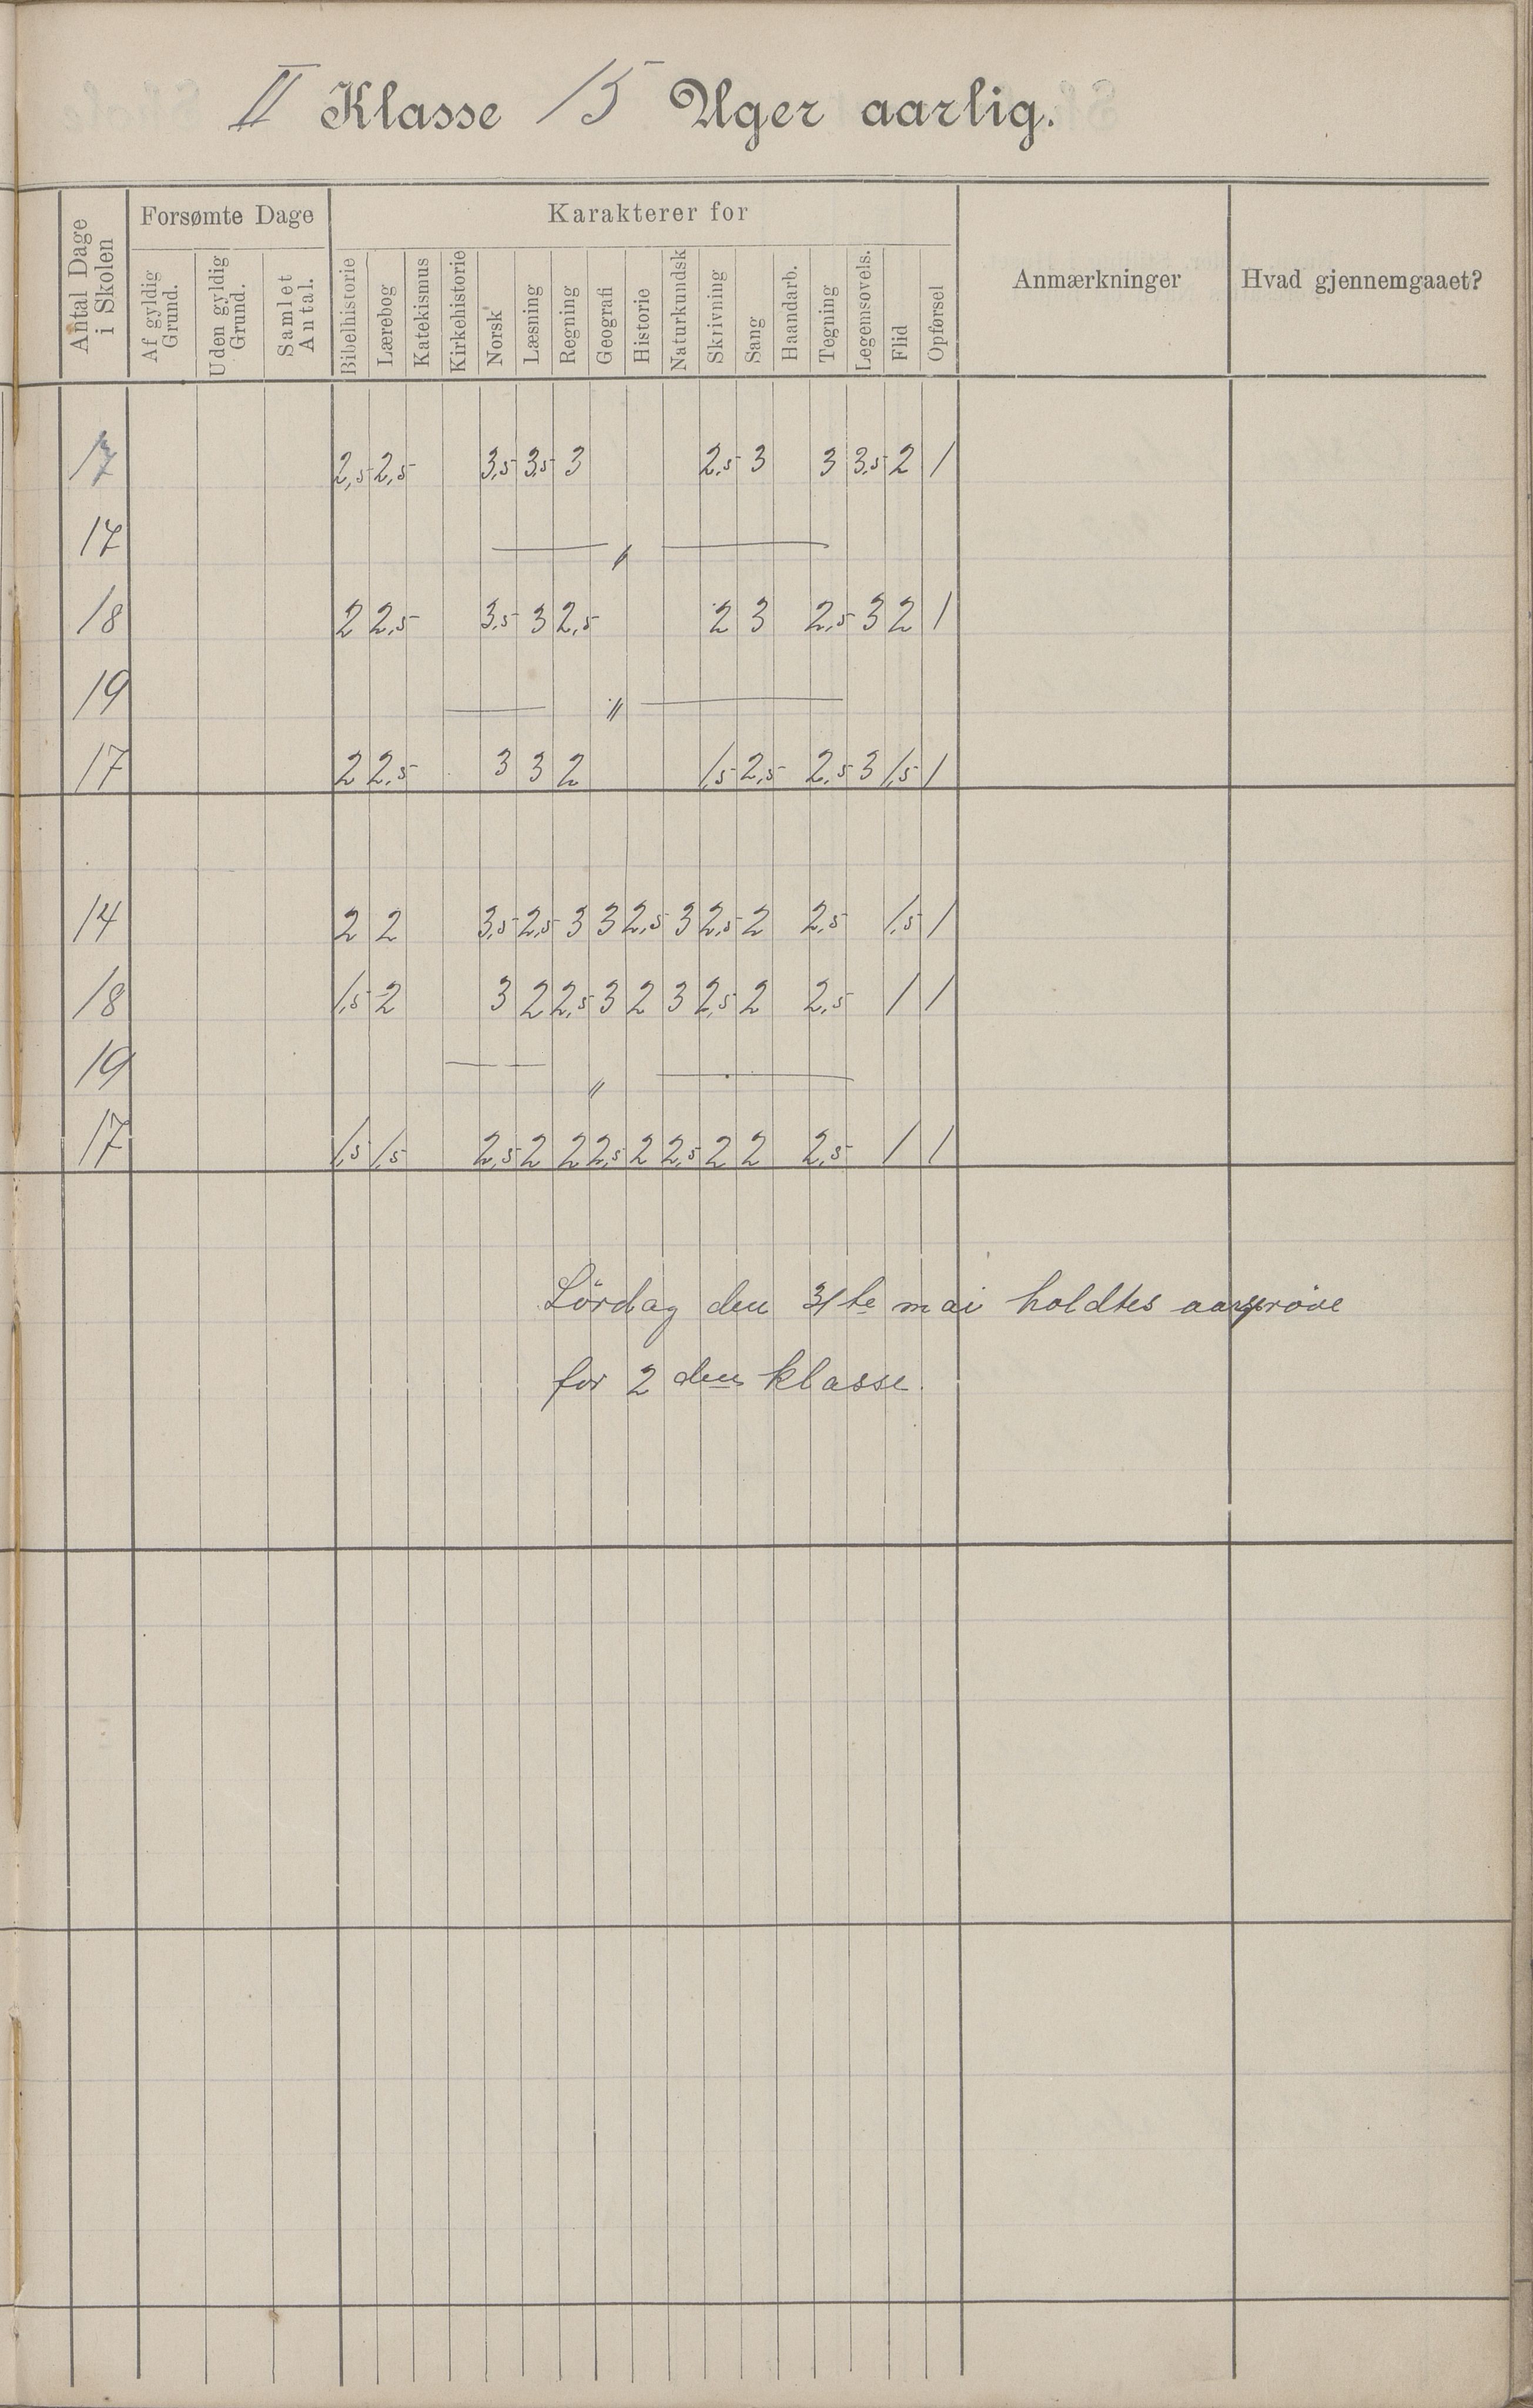 II Klasse 15 Uger aarlig.
Antal Dage i Skolen
Forsømte Dage
Af gyldig Grund.
Uden gyldig Grund.
Samlet Antal.
Karakterer for
Bibelhistorie
Lærebog
Katekismus
Kirkehistorie
Norsk
Læsning
Regning
Geografi
Historie
Naturkundsk
Skrivning
Sang
Haandarb.
Tegning
Legemsovels.
Flid
Opførsel
Anmærkninger
Hvad gjennemgaaet?
17 2,5 2,5 3,5 3,5 3 2,5 3 3 3,5 2 1
17 — " —
18 2 2,5 3,5 3 2,5 2 3 2,5 3 2 1
19 — " —
17 2 2,5 3 3 2 1,5 2,5 2,5 3 1,5 1
14 2 2 3,5 2,5 3 3 2,5 3 2,5 2 2,5 1,5 1
18 1,5 2 3 2 2,5 3 2 3 2,5 2 2,5 1 1
19 — " —
17 1,5 1,5 2,5 2 2 2,5 2 2,5 2 2 2,5 1 1
Lördag den 31te mai holdtes aarspröve
for 2den klasse.